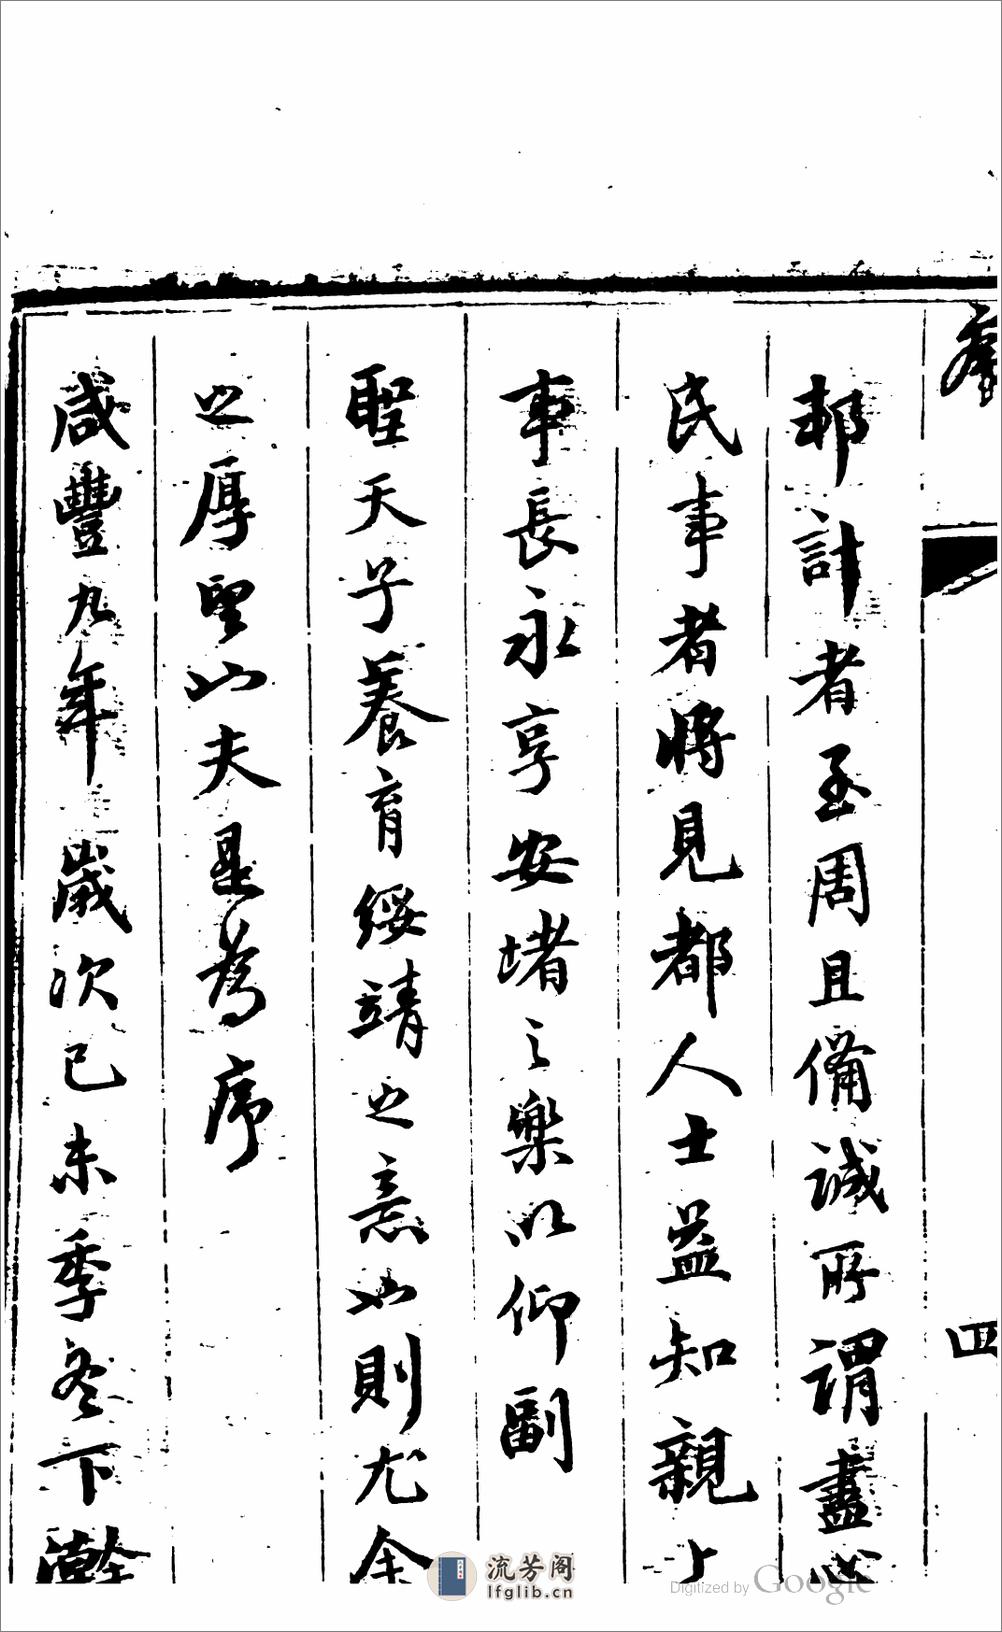 序
四
邦計者至周且備誠所謂盡心
民事者將見都人士益知親上
事長永享安堵之樂以仰副
聖天子養育綏靖之意此則尤余
之厚望也夫是為序
咸豐九年歲次己未季冬下澣
流芳阁
lfglib.cn
Digitized by Google